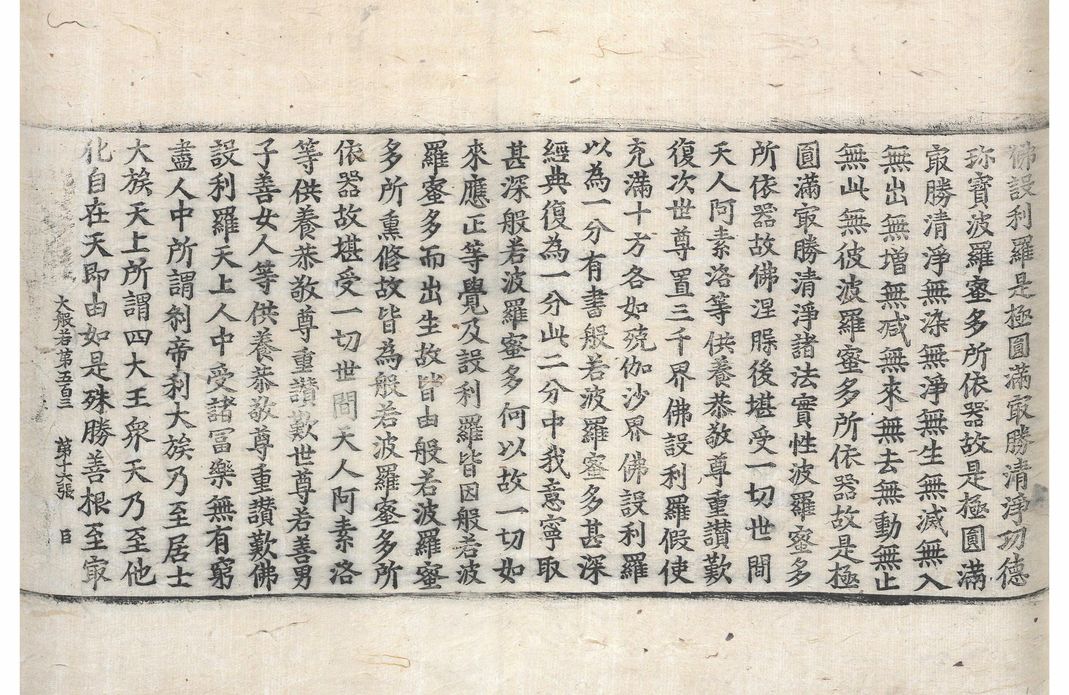 佛設利羅是極圓滿㝡勝清淨功德
珎寶波羅蜜多所依器故是極圓滿
㝡勝清淨無染無淨無生無滅無入
無出無增無減無來無去無動無止
無此無彼波羅蜜多所依器故是極
圓滿㝡勝清淨諸法實性波羅蜜多
所依器故佛涅槃後堪受一切世間
天人阿素洛等供養恭敬尊重讃歎
復次世尊置三千界佛設利羅假使
充滿十方各如殑伽沙界佛設利羅
以為一分有書般若波羅蜜多甚深
經典復為一分此二分中我意寧取
甚深般若波羅蜜多何以故一切如
來應正等覺及設利羅皆因般若波
羅蜜多而出生故皆由般若波羅蜜
多所熏修故皆為般若波羅蜜多所
依器故堪受一切世間天人阿素洛
等供養恭敬尊重讃歎世尊若善男
子善女人等供養恭敬尊重讃歎佛
設利羅天上人中受諸冨樂無有窮
盡人中所謂剎帝利大族乃至居士
大族天上所謂四大王衆天乃至他
化自在天即由如是殊勝善根至㝡
大般若第五百三 第十六張 目